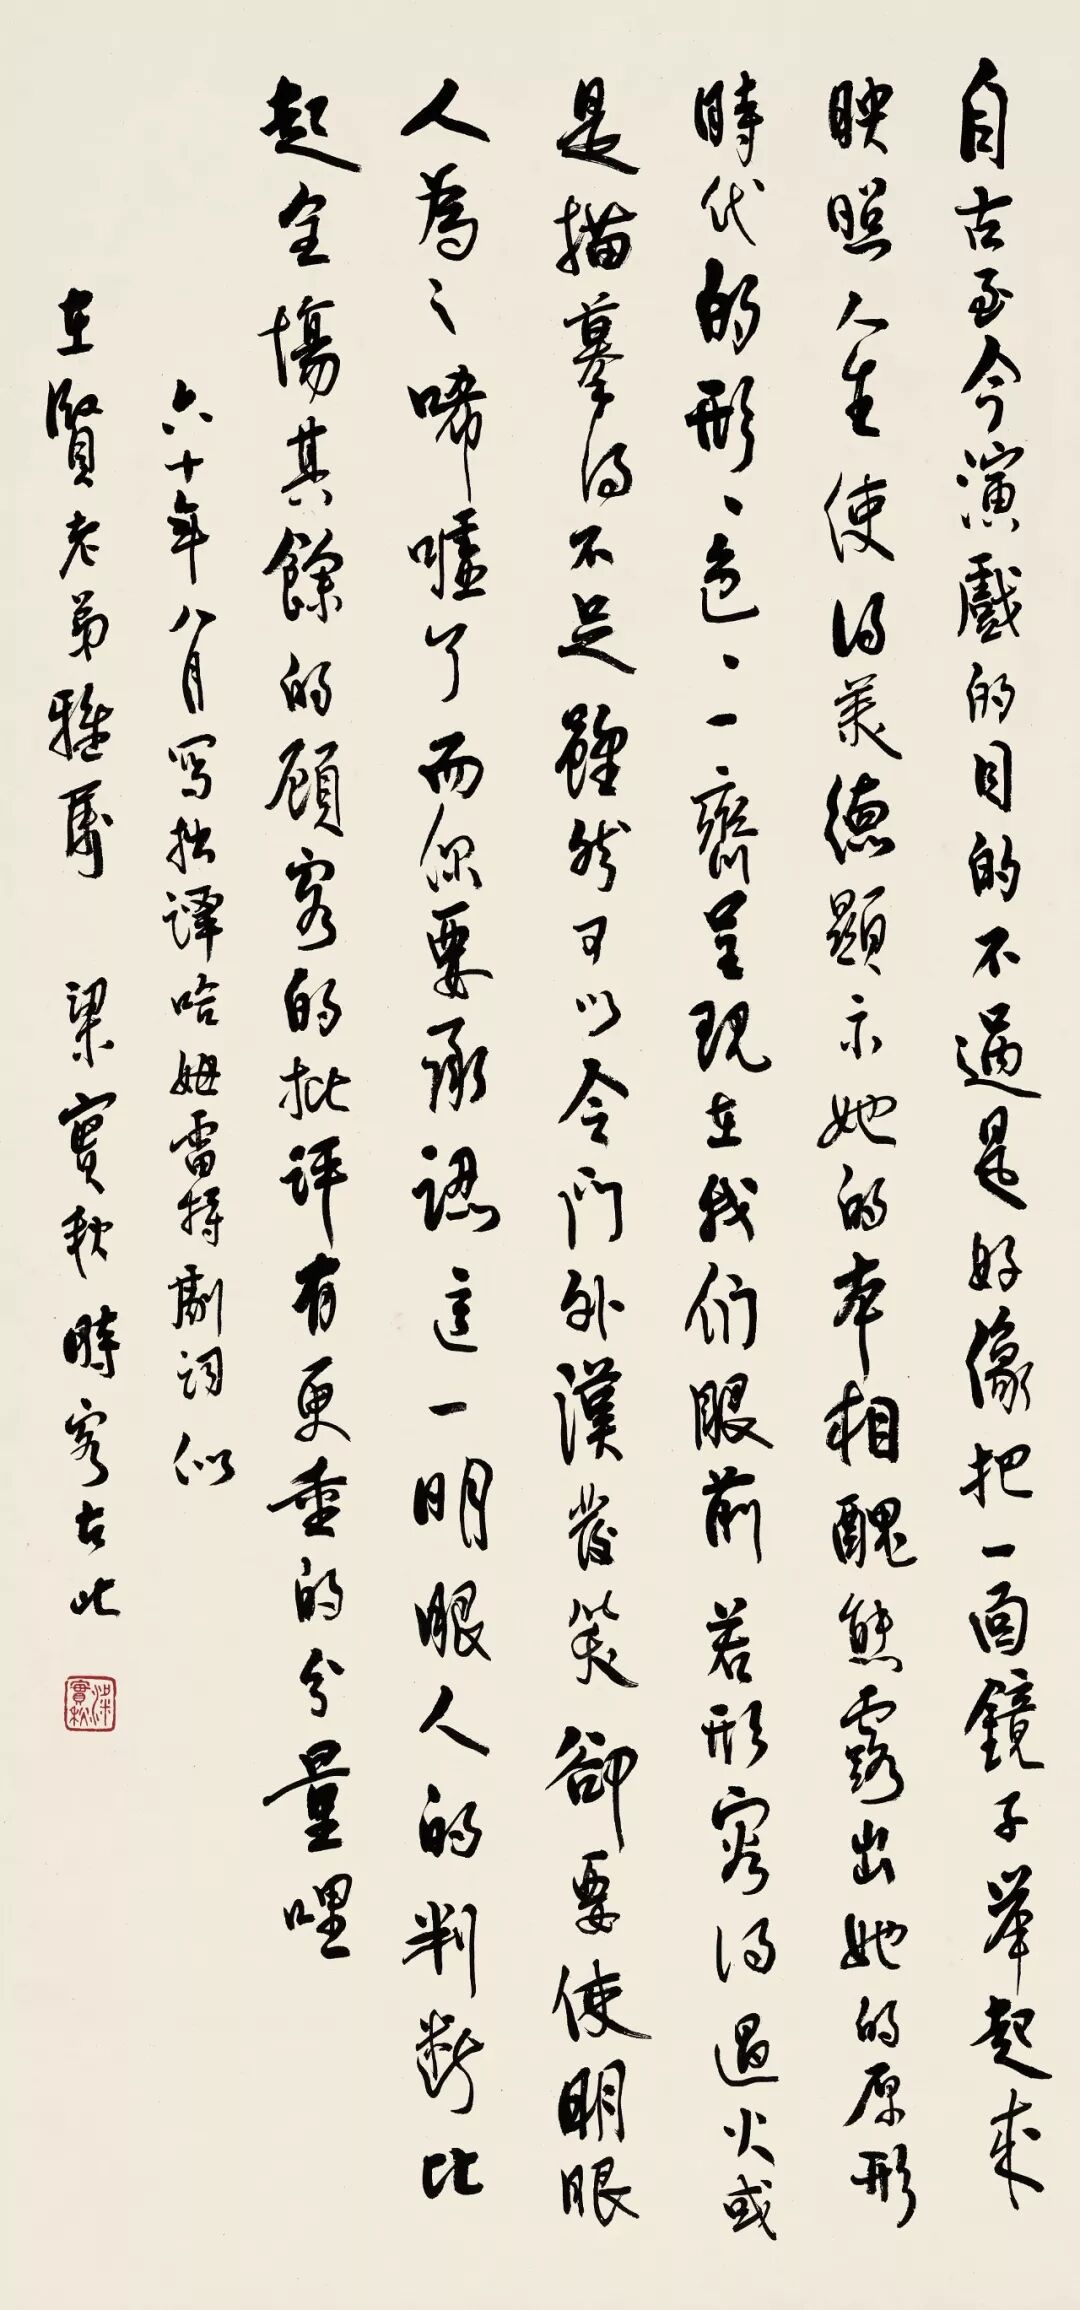 自古至今演戲的目的不過是好像把一面鏡子舉起來
映照人生使得美德顯示她的本相醜態露出她的原形
時代的形、色、一齊呈現在我们眼前若形容得過火或
是描摹得不足雖然可以令門外漢發笑卻要使明眼
人為之唏噓了而你要承認這一明眼人的判断比
起全場其餘的顧客的批评有更重的分量哩
六十年八月寫拙譯哈姆雷特劇词似
在賢老弟雅屬 梁實秋時客台北
梁實秋